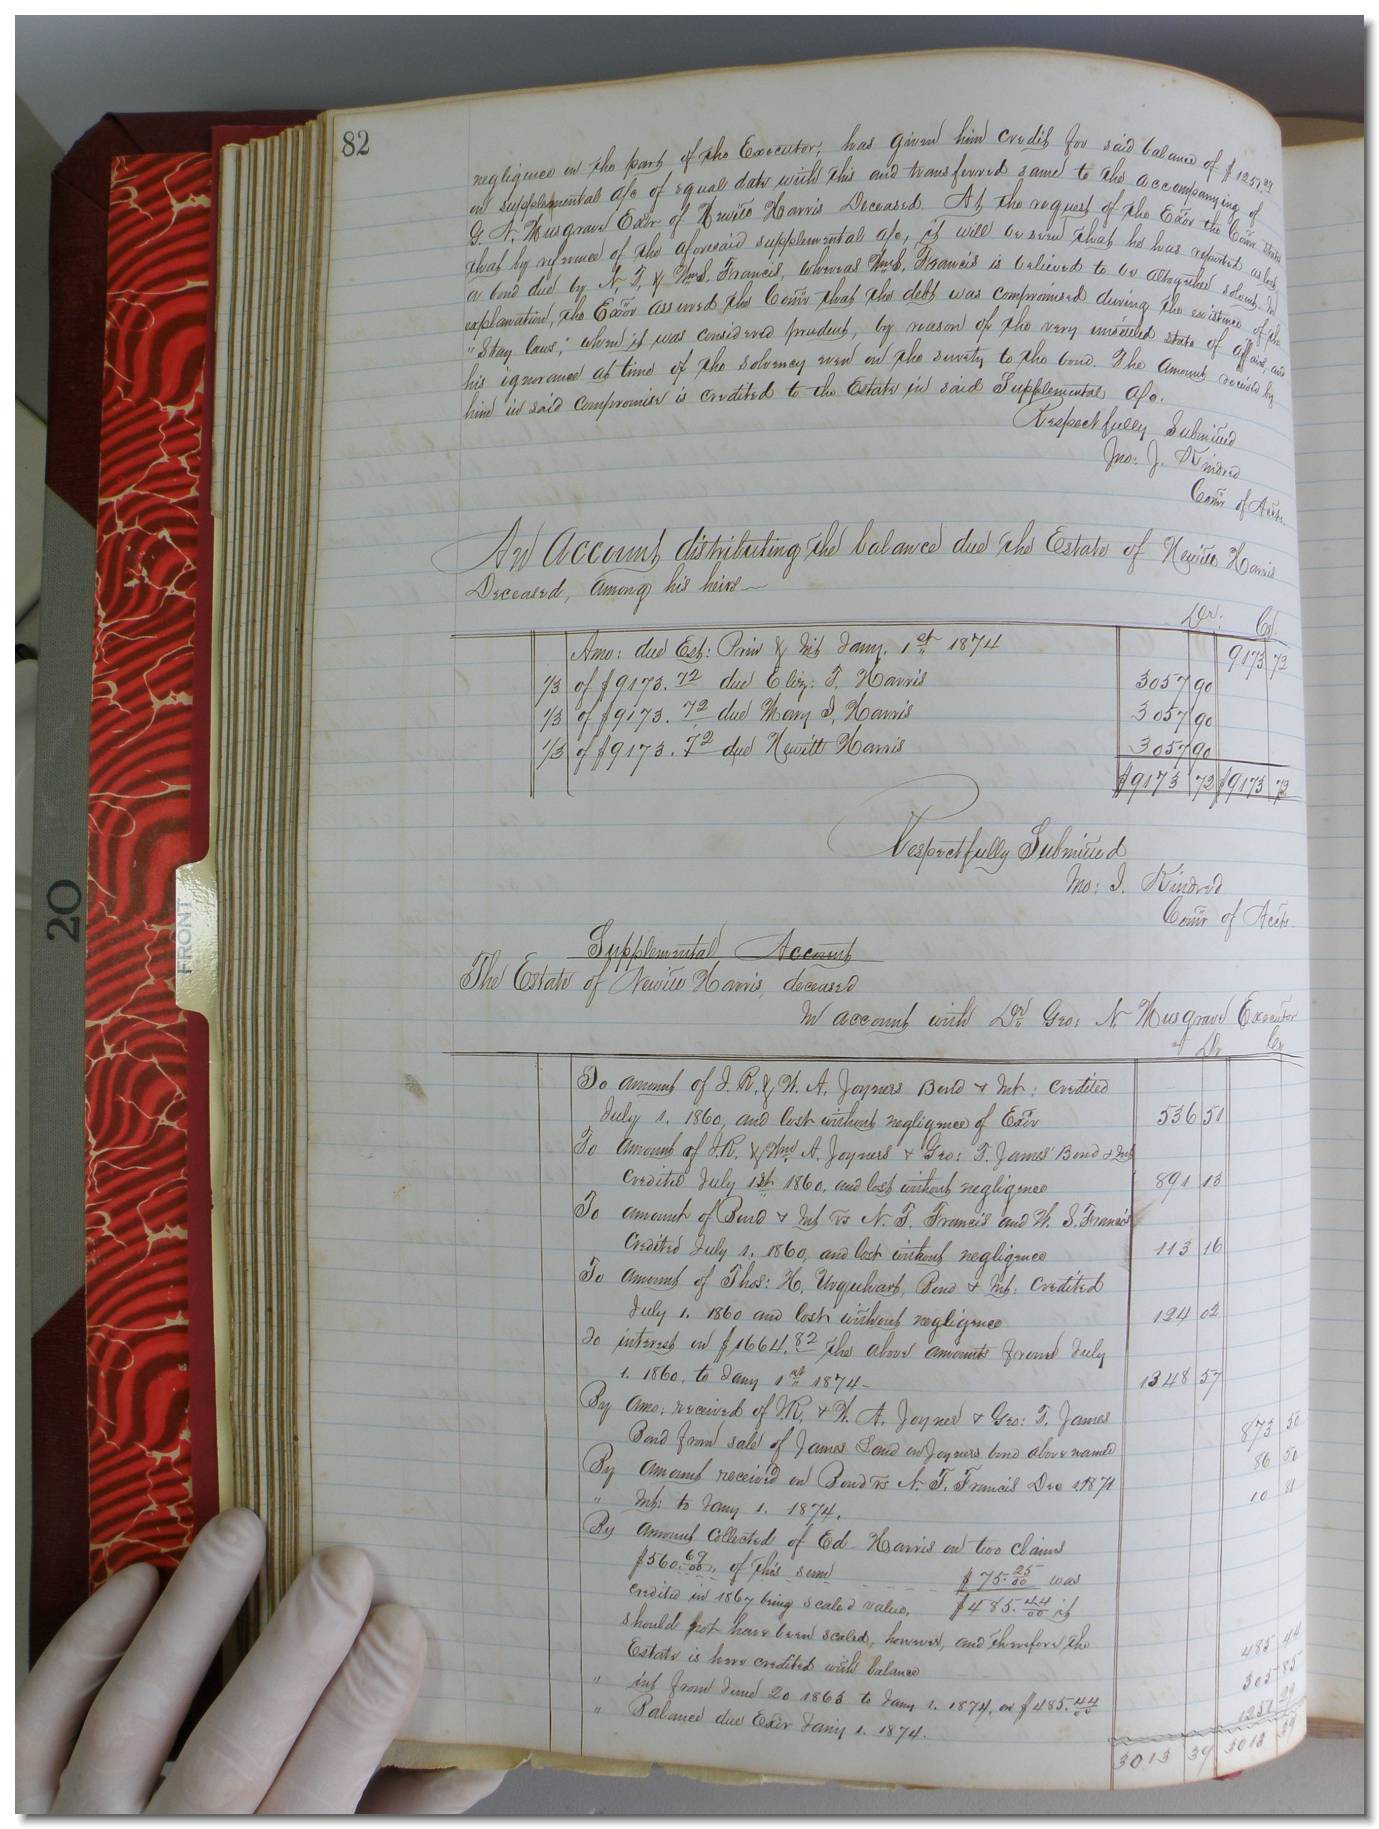 82
negligence on the part of the Executor, has given him credit for said balance of $1257.29
on supplemental a/c of equal date with this and transferred same to the accompanying of
G. N. Musgrave Exōr of Newitt Harris Deceased. At the request of the Exōr the Comr states
that by reference of the aforesaid supplemental a/c, it will be seen that he has reported as lost
a bond due by N. T. & Wm S. Francis, whereas Wm S. Francis is believed to be altogether solvent. In
explanation, the Exōr assured the Comr that the debt was compromised during the existence of the
"Stay laws," when it was considered prudent, by reason of the very unsettled state of affairs, and
his ignorance at time of the solvency even on the surety to the bond. The amount received by
him in said compromise is credited to the Estate in said Supplemental a/c.
Respectfully Submitted
Jno: J. Kindred
Comr of Accts
An Account distributing the balance due the Estate of Newitt Harris
Deceased, among his heirs
Dr. Cr.
Amo: due Est: Prin & Int Jany. 1st 1874 9173 72
1/3 of $9173.72 due Eliz: T. Harris 3057 90
1/3 of $9173.72 due Mary J. Harris 3057 90
1/3 of $9173.72 due Newitt Harris 3057 90
$9173 72 $9173 72
Respectfully Submitted
Jno: J. Kindred
Comr of Accts
FRONT
20
Supplemental Account
The Estate of Newitt Harris, deceased
In account with Dr Geo: N. Musgrave Executor
Dr Cr
To amount of J. R. & W. A. Joyners Bond & Int: credited
July 1. 1860, and lost without negligence of Exōr 536 51
To amount of J. R. & Wm A. Joyners & Geo: T. James' Bond & Int
Credited July 1st 1860, and lost without negligence 891 13
To amount of Bond & Int vs N. T. Francis and W. S. Francis
Credited July 1. 1860, and lost without negligence 113 16
To amount of Thos: H. Urquhart, Bond & Int: Credited
July 1. 1860 and lost without negligence 124 02
To interest on $1664.82 the above amounts from July
1. 1860, to Jany 1st 1874 1348 57
By Amo: received of J. R. & W. A. Joyner & Geo: T. James
Bond from sale of James Land on Joyners bond above named 873 50
By amount received on Bond vs N. T. Francis Dec 1871 86 50
" Int: to Jany 1. 1874. 10 81
By amount Collected of Ed Harris on two claims
$560.69/00 of this sum $75.25/00 was
credited in 1867 being scaled value, $485.44/00 it
should not have been scaled, however, and therefore the
Estate is here credited with balance 485 44
" int from June 20 1863 to Jany 1. 1874, on $485.44/00 305 85
" Balance due Exōr Jany 1. 1874. 1251 29
3013 39 3013 39